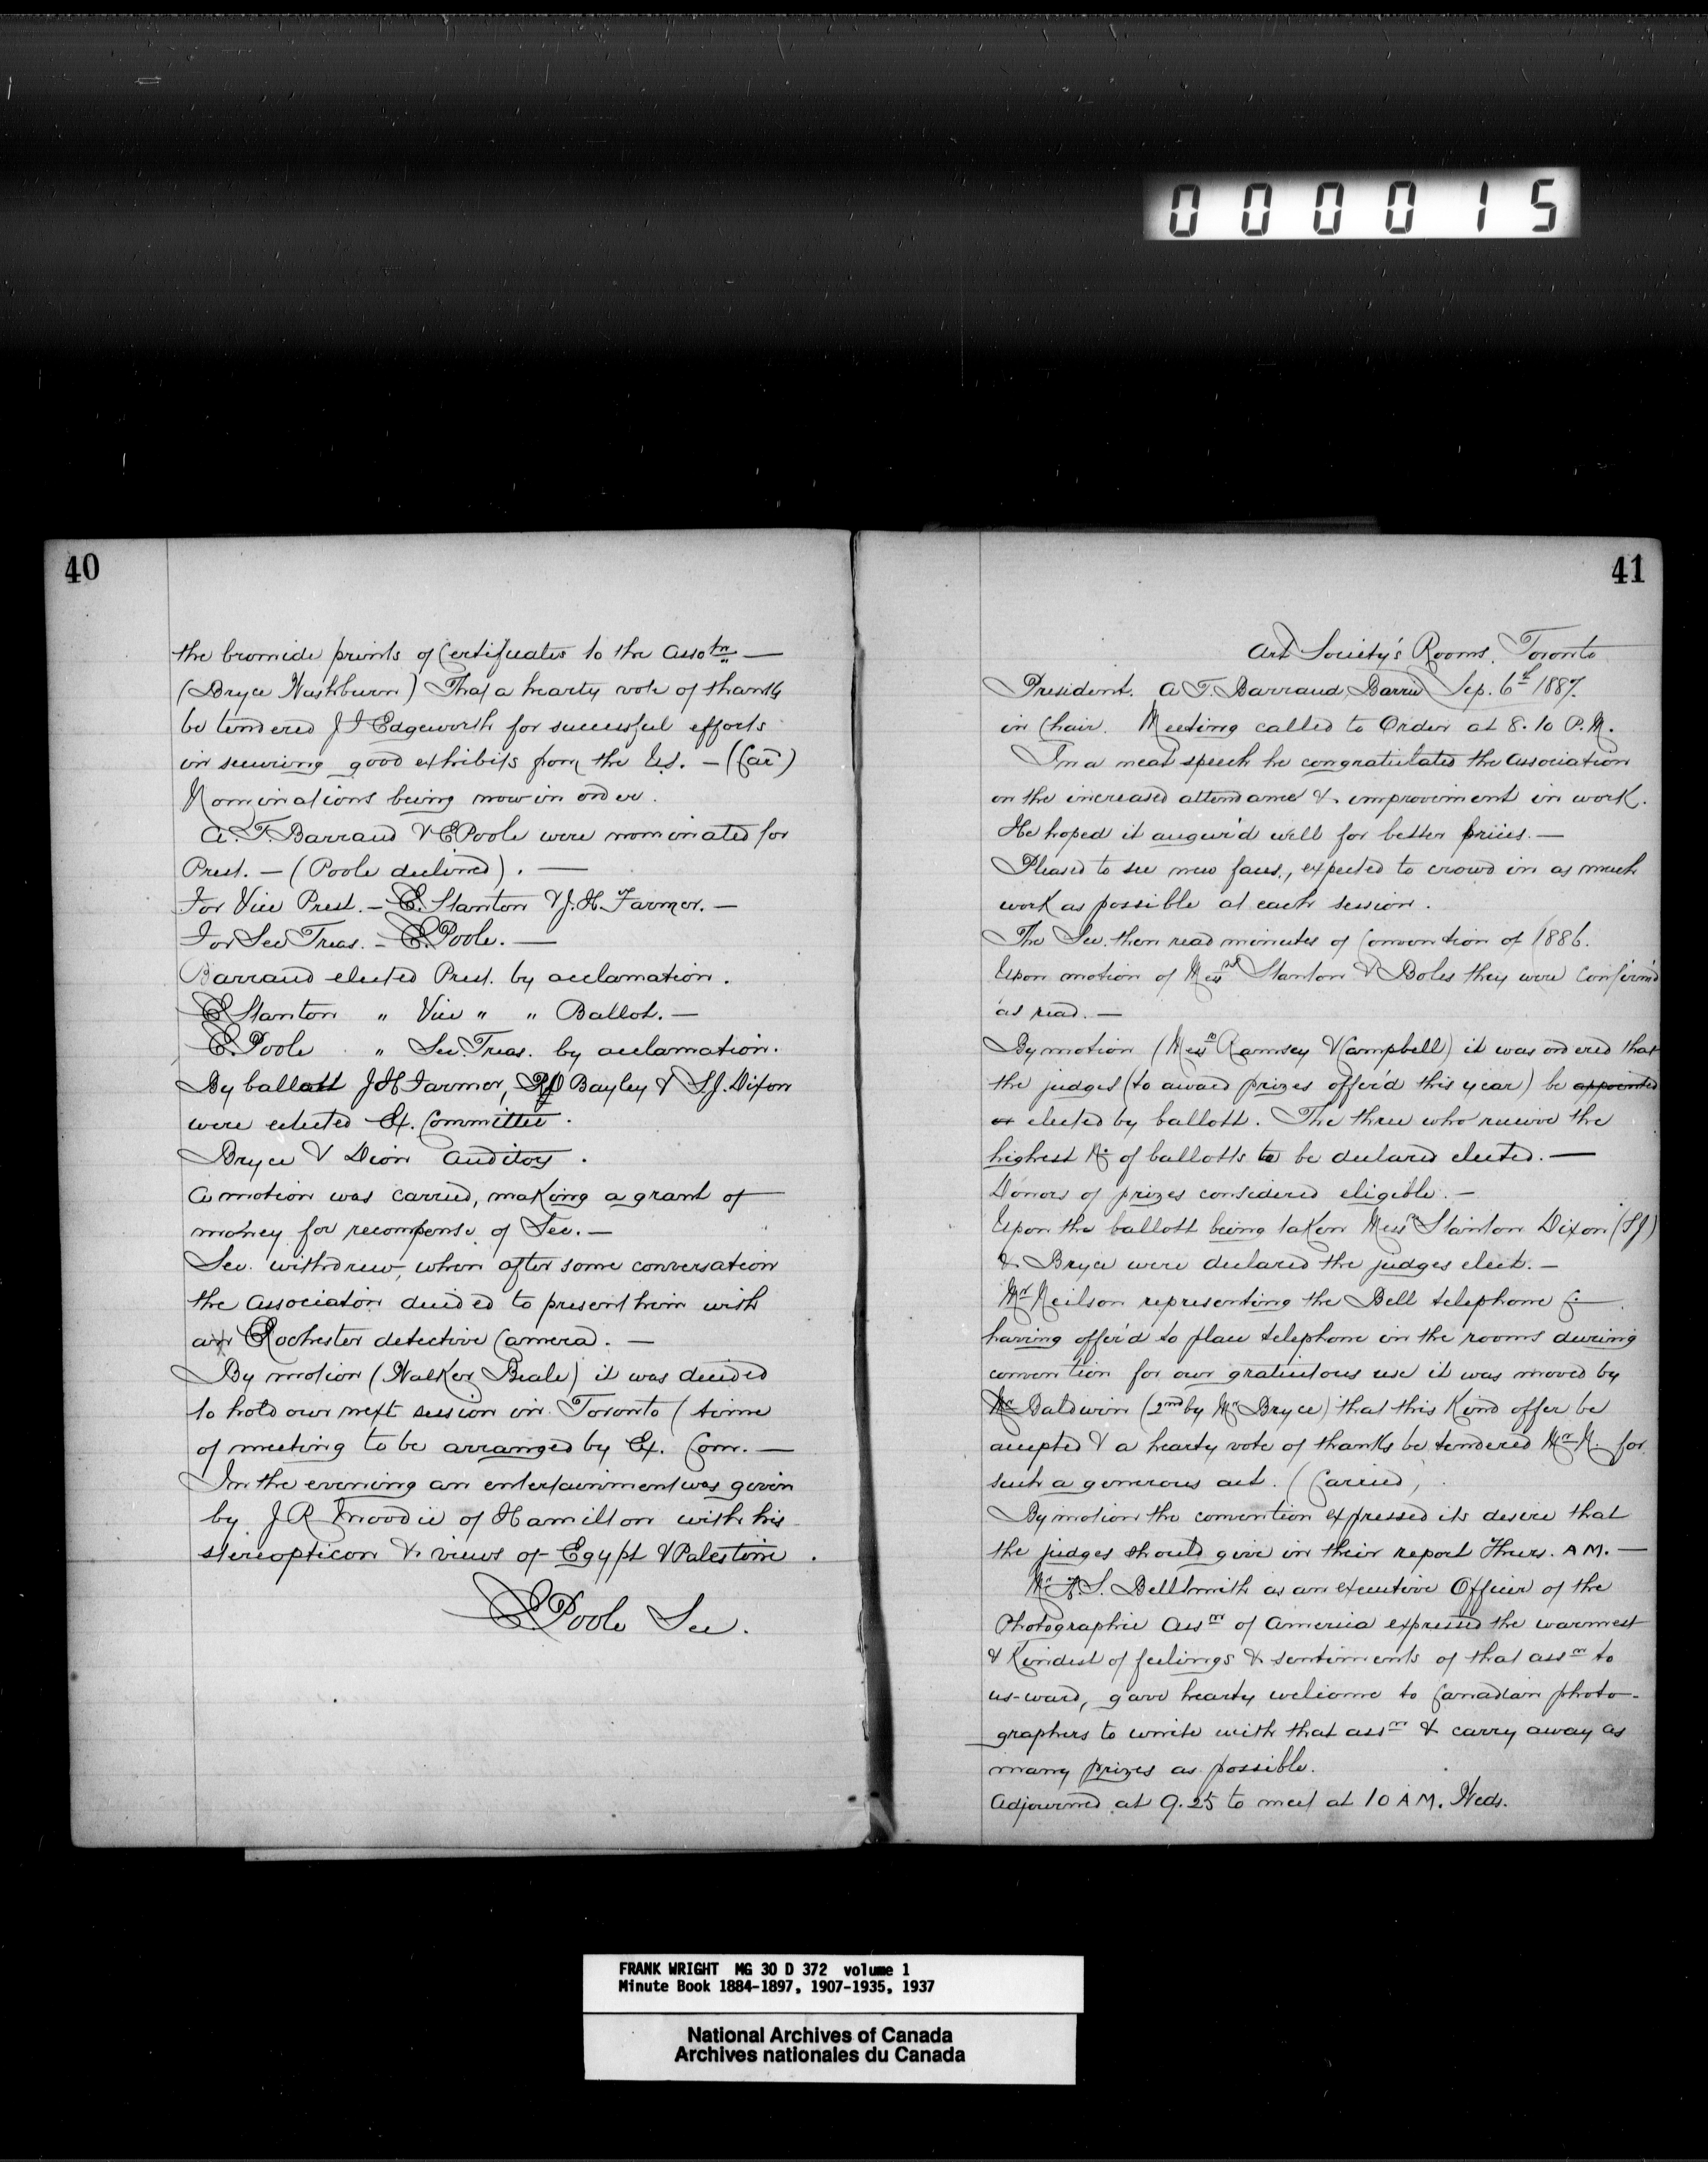 000015
40
the bromide prints of Certificates to the Assotn —
(Bryce Washburn) That a hearty vote of thanks
be tendered J J Edgeworth for successful efforts
in securing good exhibits from the U.S. — (Car)
Nominations being now in order.
A. F. Barraud & E Poole were nominated for
Prest. — (Poole declined). —
For Vice Prest. — E. Stanton & J. H. Farmer. —
For Sec Treas. — E. Poole. —
Barraud elected Prest. by acclamation.
E Stanton " Vice " " Ballot. —
E. Poole " Sec. Treas. by acclamation.
By ballott J H Farmer, Bayley & S. J. Dixon
were elected Ex. Committee.
Bryce & Dion Auditors.
A motion was carried, making a grant of
money for recompense of Sec. —
Sec. withdrew, when after some conversation
the Association decided to present him with
a Rochester detective Camera. —
By motion (Walker Beale) it was decided
to hold our next session in Toronto (time
of meeting to be arranged by Ex. Com. —
In the evening an entertainment was given
by J R Moodie of Hamilton with his
stereopticon & views of Egypt & Palestine.
E Poole Sec.
41
Art Society's Rooms. Toronto
President. A F. Barraud, Barrie Sep. 6th 1887.
in Chair. Meeting called to Order at 8.10 P.M.
In a neat speech he congratulated the Association
on the increased attendance & improvement in work.
He hoped it augur'd well for better prices. —
Pleased to see new faces, expected to crowd in as much
work as possible at each session.
The Sec. then read minutes of Convention of 1886.
Upon motion of Messrs Stanton & Boles they were confirm'd
as read. —
By motion (Messrs Ramsey & Campbell) it was ordered that
the judges (to award prizes offer'd this year) be appointed
or elected by ballott. The three who receive the
highest No of ballotts to be declared elected. —
Donors of prizes considered eligible. —
Upon the ballott being taken Messrs Stanton Dixon (SJ)
& Bryce were declared the judges elect. —
Mr Neilson representing the Bell telephone Co
having offer'd to place telephone in the rooms during
convention for our gratuitous use it was moved by
Mr Baldwin (2nd by Mr Bryce) that this Kind offer be
accepted & a hearty vote of thanks be tendered Mr N. for
such a generous act. (Carried)
By motion the convention expressed its desire that
the judges should give in their report Thurs. AM. —
Mr F. S. Bellsmith as an executive Officer of the
Photographic Assn of America expressed the warmest
& Kindest of feelings & sentiments of that assn to
us-ward, gave hearty welcome to Canadian photo-
graphers to unite with that assn & carry away as
many prizes as possible.
Adjourned at 9.25 to meet at 10 AM. Weds.
FRANK WRIGHT MG 30 D 372 volume 1
Minute Book 1884-1897, 1907-1935, 1937
National Archives of Canada
Archives nationales du Canada